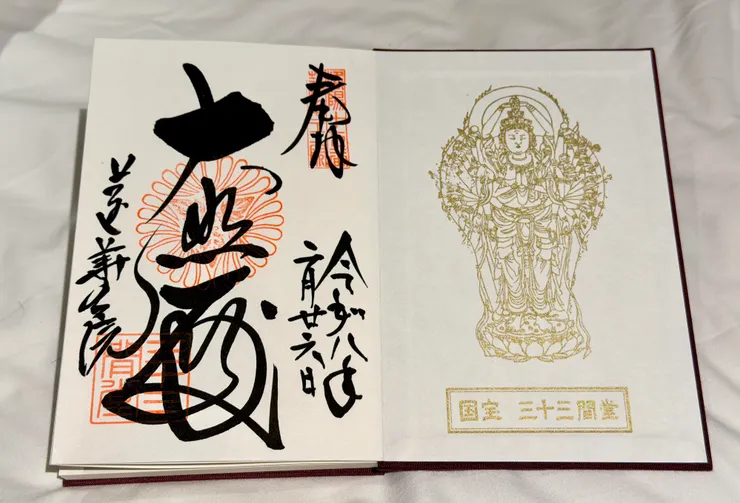 奉拝
大悲殿
蓮華王院
令和八年
二月廿六日
三十三間堂
国宝 三十三間堂